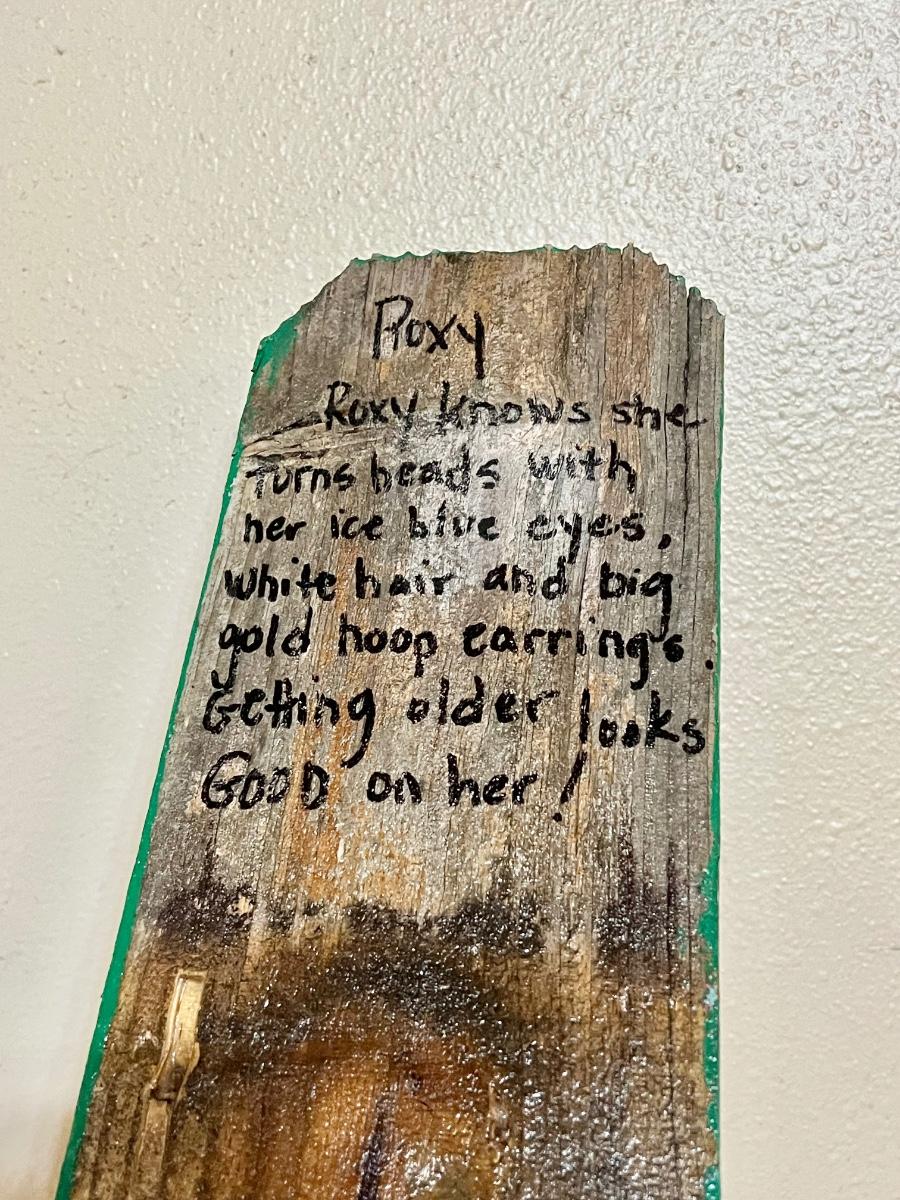 Roxy
Roxy knows she
turns heads with
her ice blue eyes,
white hair and big
gold hoop earrings.
Getting older looks
GOOD on her!